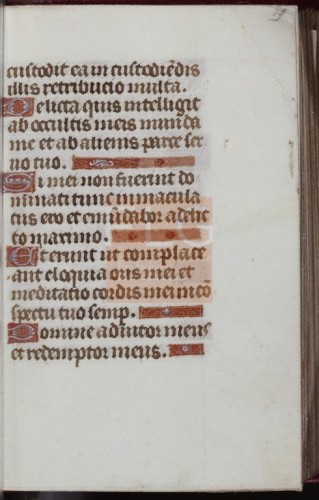 custodit ea in custodiēdis
illis retributio multa.
Delicta quis intelligit
ab occultis meis mūnda
me et ab alienis parce ser
uo tuo.
Si mei non fuerint do
minati tunc immacula
tus ero et emūdabor a delic
to maximo.
Et erunt ut complace
ant eloquia oris mei et
meditatio cordis mei in cō
spectu tuo semp.
Domine adiutor meus
et redemptor meus.